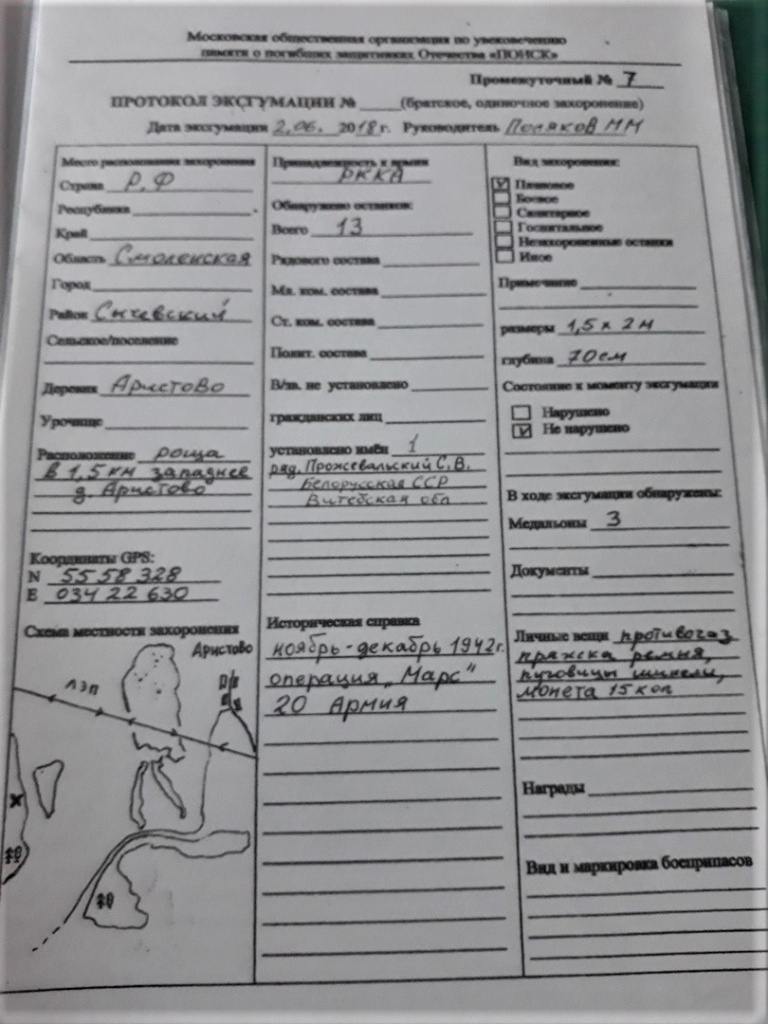 Московская общественная организация по увековечению
памяти о погибших защитниках Отечества «ПОИСК»
Промежуточный № 7
ПРОТОКОЛ ЭКСГУМАЦИИ № _____ (братское, одиночное захоронение)
Дата эксгумации 2.06. 2018г. Руководитель Поляков ММ
Место расположения захоронения
Страна Р.Ф
Республика
Край
Область Смоленская
Город
Район Сычевский
Сельское/поселение
Деревня Аристово
Урочище
Расположение роща
в 1,5 км западнее
д. Аристово
Координаты GPS:
N 55 58 328
E 034 22 630
Схема местности захоронения
Аристово
ЛЭП
Принадлежность к армии
РККА
Обнаружено останков:
Всего 13
Рядового состава
Мл. ком. состава
Ст. ком. состава
Полит. состава
В/зв. не установлено
гражданских лиц
установлено имён 1
ряд. Прожевальский С.В.
Белорусская ССР
Витебская обл
Историческая справка
ноябрь-декабрь 1942г.
операция „Марс"
20 Армия
Вид захоронения:
Плановое
Боевое
Санитарное
Госпитальное
Незахороненные останки
Иное
Примечание
размеры 1,5 х 2 м
глубина 70 см
Состояние к моменту эксгумации
Нарушено
Не нарушено
В ходе эксгумации обнаружены:
Медальоны 3
Документы
Личные вещи противогаз
пряжка ремня,
пуговицы шинели,
монета 15 коп
Награды
Вид и маркировка боеприпасов